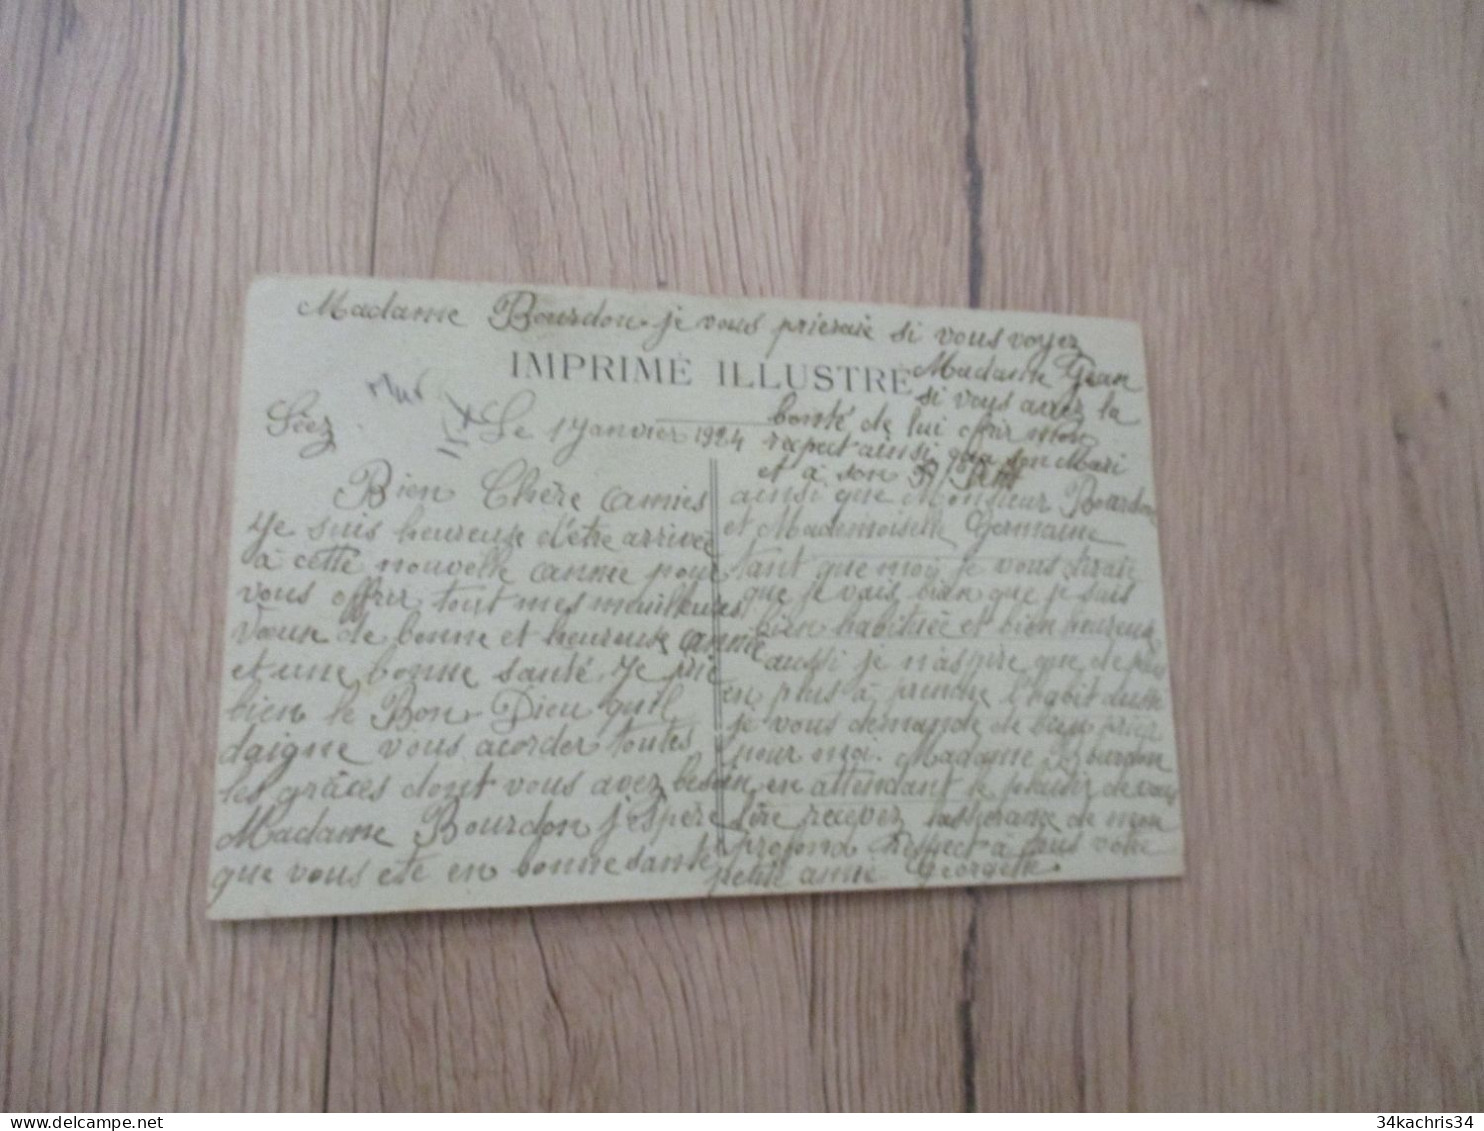 Madame Bourdon je vous prieraie si vous voyez
Madame Jean
si vous avez la
bonté de lui ofrir mon
respect ainsi que son Mari
et à son Petit
IMPRIMÉ ILLUSTRÉ
Séez
Le 1 Janvier 1924
Bien Chère Amies
Je suis heureuse d'être arrivée
à cette nouvelle année pour
vous offrir tout mes meilleures
vœux de bonne et heureuse année
et une bonne santé. Je prie
bien le Bon Dieu qu'il
daigne vous acorder toutes
les grâces dont vous avez besoin
Madame Bourdon j'espère
que vous ete en bonne santé
ainsi que Monsieur Bourdon
et Mademoiselle Germaine
tant que moi je vous dirais
que je vais bien que je suis
bien habituée et bien heureuse
aussi je n'aspire que de plus
en plus à prendre l'habit aussi
je vous demande de bien prier
pour moi. Madame Bourdon
en attendant le plaisir de vous
lire recevez l'assurance de mon
profond Respect à tous votre
petite amie Georgette.
34kachris34